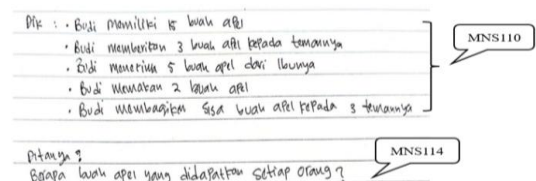 Dik : • Budi memiliki 15 buah apel
• Budi memberikan 3 buah apel kepada temannya
• Budi menerima 5 buah apel dari Ibunya
• Budi memakan 2 buah apel
• Budi membagikan sisa buah apel kepada 3 temannya
MNS110
Ditanya ?
Berapa buah apel yang didapatkan setiap orang ?
MNS114